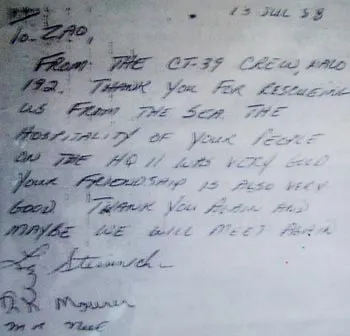 13 JUL 88
To ZAO,
FROM THE CT-39 CREW, HALO
192. THANK YOU FOR RESCUEING
US FROM THE SEA. THE
HOSPITALITY OF YOUR PEOPLE
ON THE HQ 11 WAS VERY GOOD
YOUR FRIENDSHIP IS ALSO VERY
GOOD THANK YOU AGAIN AND
MAYBE WE WILL MEET AGAIN